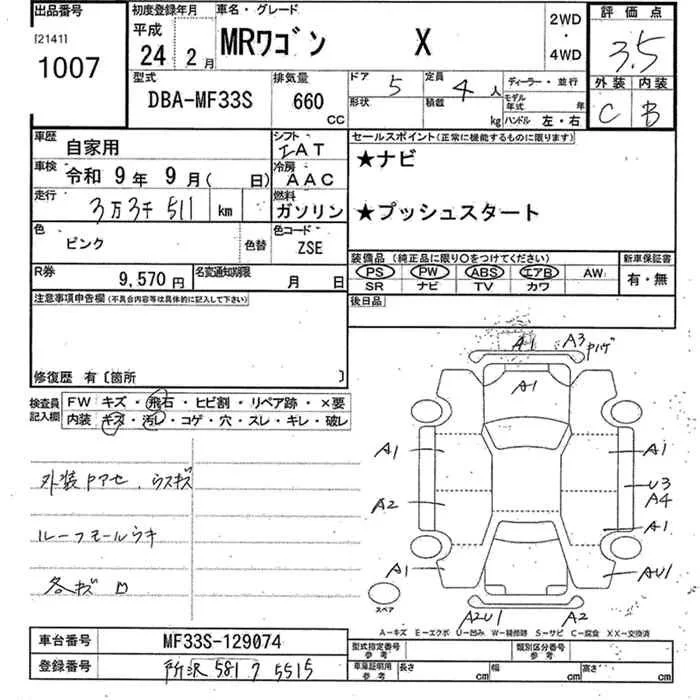 出品番号 初度登録年月 車名・グレード 評価点
[2141]
1007
平成
24 2月
MRワゴン X
2WD
・
4WD
3.5
型式 排気量 ドア 定員 ディーラー・並行 外装 内装
DBA-MF33S 660 CC 5 4人
形状 積載 kg モデル年式 年
ハンドル 左・右
C B
車歴 自家用 シフト IAT セールスポイント(正常に機能するものに限ります)
車検 令和 9年 9月( 日) 冷房 AAC ★ナビ
走行 3万3千511 km 燃料 ガソリン ★プッシュスタート
色 ピンク 色替 色コード ZSE
装備品(純正品に限り〇をつけてください) 新車保証書
PS PW ABS エアB AW 有・無
SR ナビ TV カワ
R券 9,570円 名変通知期限 月 日
後日品
注意事項申告欄(不具合内容等は具体的に記入して下さい)
修復歴 有〔箇所 〕
検査員記入欄 FW キズ・飛石・ヒビ割・リペア跡・×要
内装 キズ・汚レ・コゲ・穴・スレ・キレ・破レ
外装Pアセ、ウスキズ
ルーフモールウキ
各キズ
A1 A3
A1
A1 A1
U3
A2 A4
A1
A1 AU1
スペア
A2U1 A2
A-キズ E-エクボ U-凹み W-補修跡 S-サビ C-腐食 XX-交換済
車台番号 MF33S-129074
登録番号 所沢 581 ワ 5515
型式指定番号 参考 類別区分番号 参考
車庫証明用 参考 長さ cm 幅 cm 高さ cm